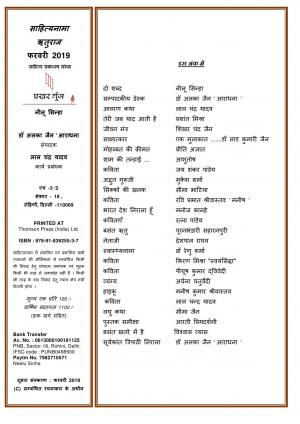 साहित्यनामा
ऋतुराज
फरवरी 2019
साहित्य प्रकाशन संस्था
प्रखर गूँज
नीलू सिन्हा
डॉ अलका जैन 'आराधना'
संपादक
लाल चंद्र यादव
कार्य प्रबंधक
एच -3 /2
सेक्टर - 18 ,
रोहिणी, दिल्ली -110089
PRINTED AT
Thomson Press (India) Ltd.
ISBN : 978-91-839255-3-7
मूल्य एक प्रति 100 /-
वार्षिक सदस्यता 1100 /-
(डाक खर्च सहित)
Bank Transfer
Ac. No. : 0613000100191125
PNB, Sector-18, Rohini, Delhi.
IFSC code : PUNB0458900
Paytm No. 7982710571
Neelu Sinha
दूसरा संस्करण : फरवरी 2019
(C) सम्बंधित रचनाकार के अधीन
इस अंक में
दो शब्द नीलू सिन्हा
सम्पादकीय डेस्क डॉ अलका जैन 'आराधना '
आवरण कथा लाल चंद्र यादव
तेरी जब याद आती है प्रशांत मिश्रा
जीवन मंत्र शिखर चंद जैन
साक्षात्कार एक मुलाकात ......डॉ लाड कुमारी जैन
मोहब्बत की कीमत प्रीति अज्ञात
शाम की तन्हाई ... आशुतोष
कविता जय शंकर पांडेय
अद्भुत गुरुजी मुकेश शर्मा
सिक्कों की खनक सीमा भाटिया
कविता रवि प्रभात श्रीवास्तव " मनीष "
भारत देश निराला हूँ मनोज कान्हे
कविताएँ रत्ना पांडेय
बसंत ऋतु पूरनभंडारी सहारनपुरी
नेताजी देशपाल राघव
स्वास्थ्यनामा डॉ रेणु शर्मा
कविता किरण मिश्रा "स्वयंसिद्धा"
कविता पीयूष कुमार द्विवेदी
व्यंग्य अर्चना चतुर्वेदी
हाइकू मनीष कुमार श्रीवास्तव
कविता लाल चन्द्र यादव
लघु कथा सीमा जैन
पुस्तक समीक्षा आरती प्रियदर्शनी
बसंत खतरे में है विश्वास व्यास
सूर्यकांत त्रिपाठी निराला डॉ अलका जैन 'आराधना '